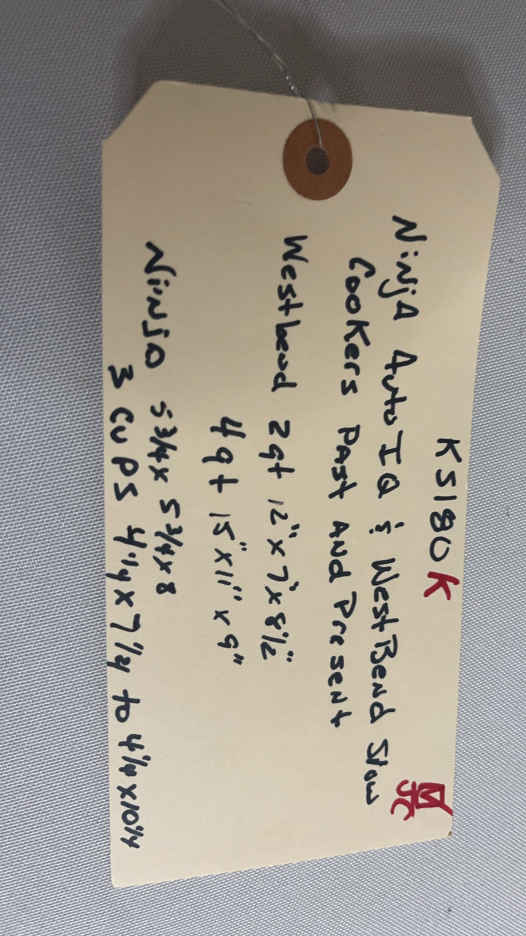 KS180K
Ninja Auto IQ & West Bend Slow
Cookers Past And Present
Westbend 2qt 12" x 7" x 8½"
4qt 15" x 11" x 9"
Ninja 5 3/4 x 5 3/4 x 8
3 cups 4 1/4 x 7 1/4 to 4 1/4 x 10 1/4